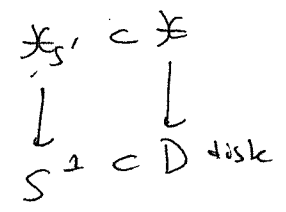 𝔛_{S'} ⊂ 𝔛
↓ ↓
S^1 ⊂ D disk